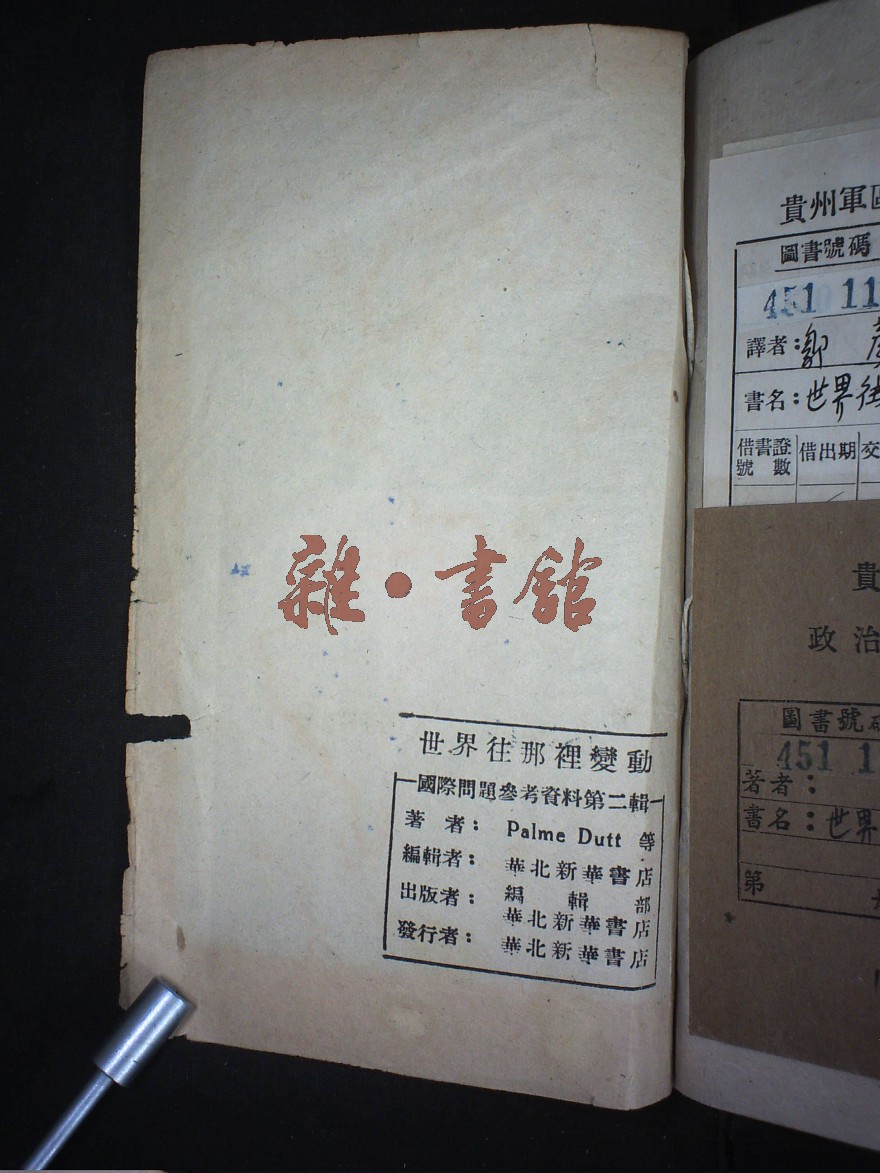 雜·書館
世界往那裡變動
國際問題參考資料第二輯
著者：Palme Dutt 等
編輯者：華北新華書店
編輯部
出版者：華北新華書店
發行者：華北新華書店
貴州軍區
圖書號碼
451 11
譯者：郭
書名：世界往
借書證號數 借出期 交
貴
政治
圖書號碼
451 1
著者：
書名：世界
第